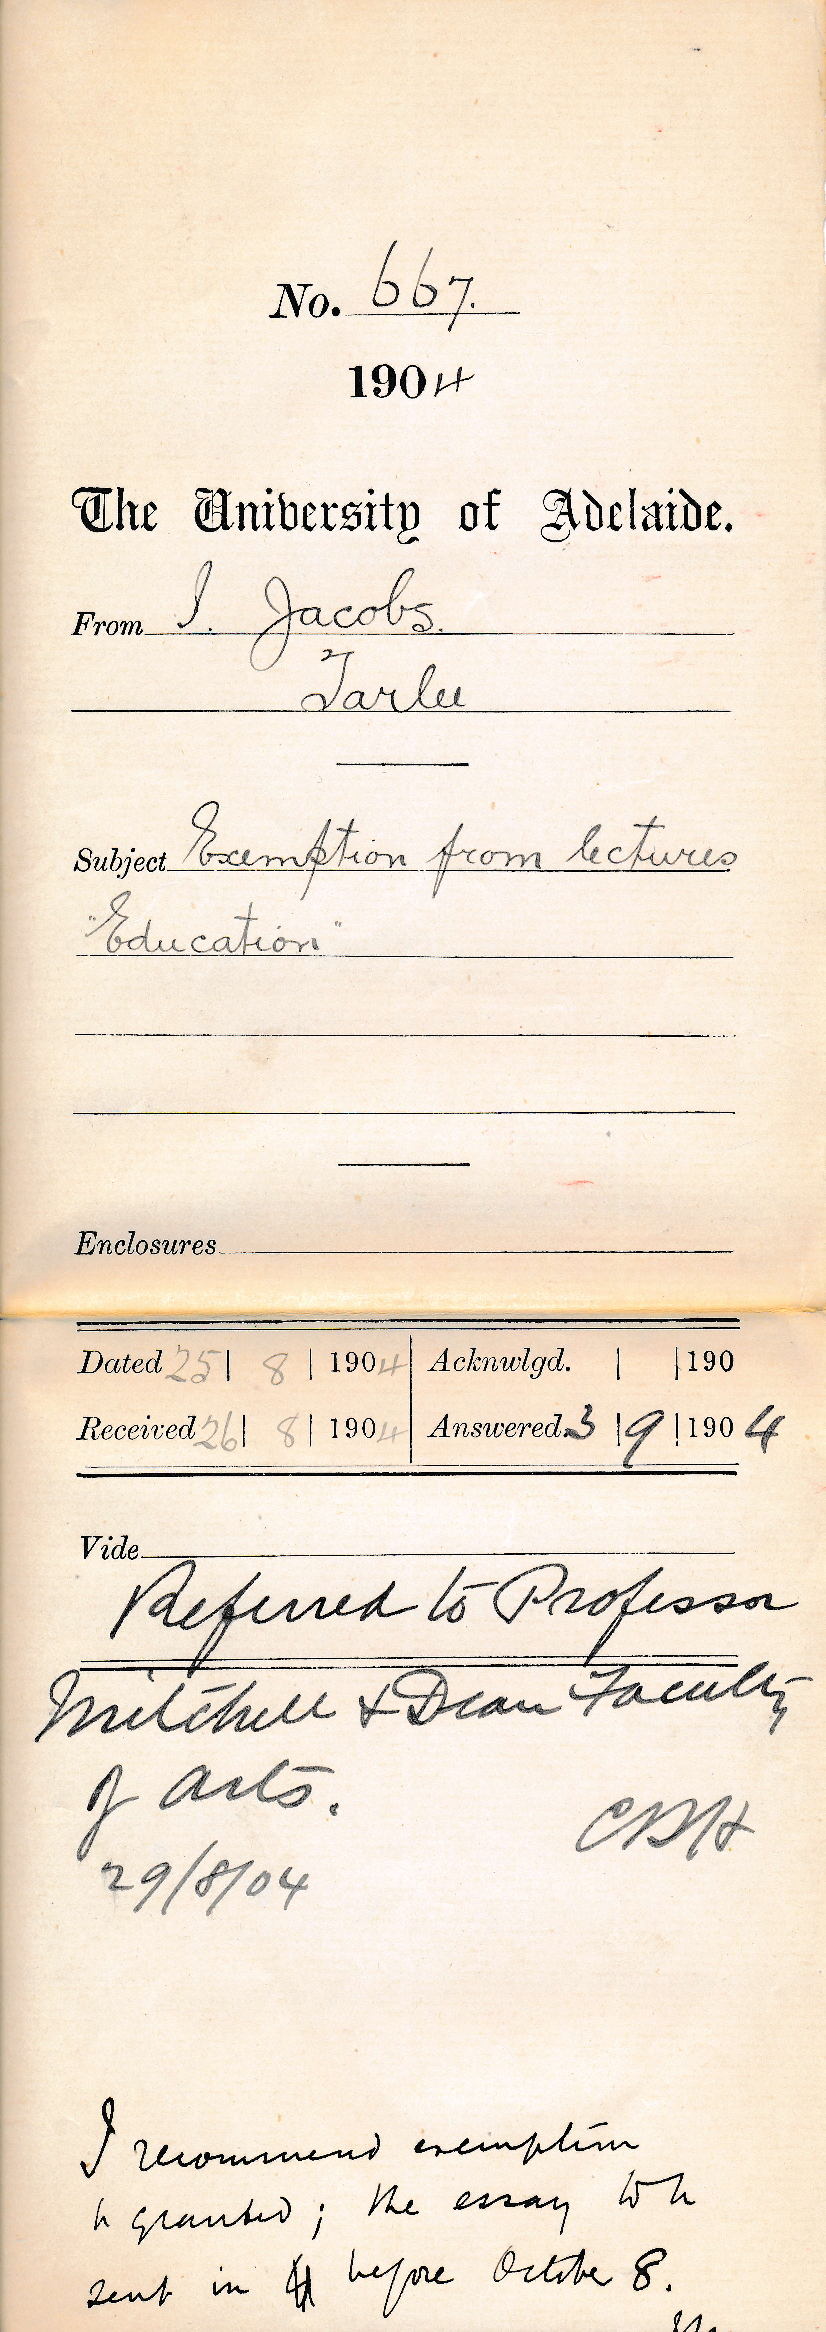 No. 667.
1904
The University of Adelaide.
From I. Jacobs.
Tarlee
Subject Exemption from lectures
"Education"
Enclosures
Dated 25 | 8 | 1904 Acknwlgd. | | 190
Received 26 | 8 | 1904 Answered 3 | 9 | 1904
Vide
Referred to Professor
Mitchell & Dean Faculty
of Arts.
CRH
29/8/04
I recommend exemption
be granted; the essay to be
sent in before October 8.